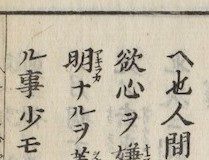 ヘ也人間
欲心ヲ嫌
明ナルヲ
ル事少モ